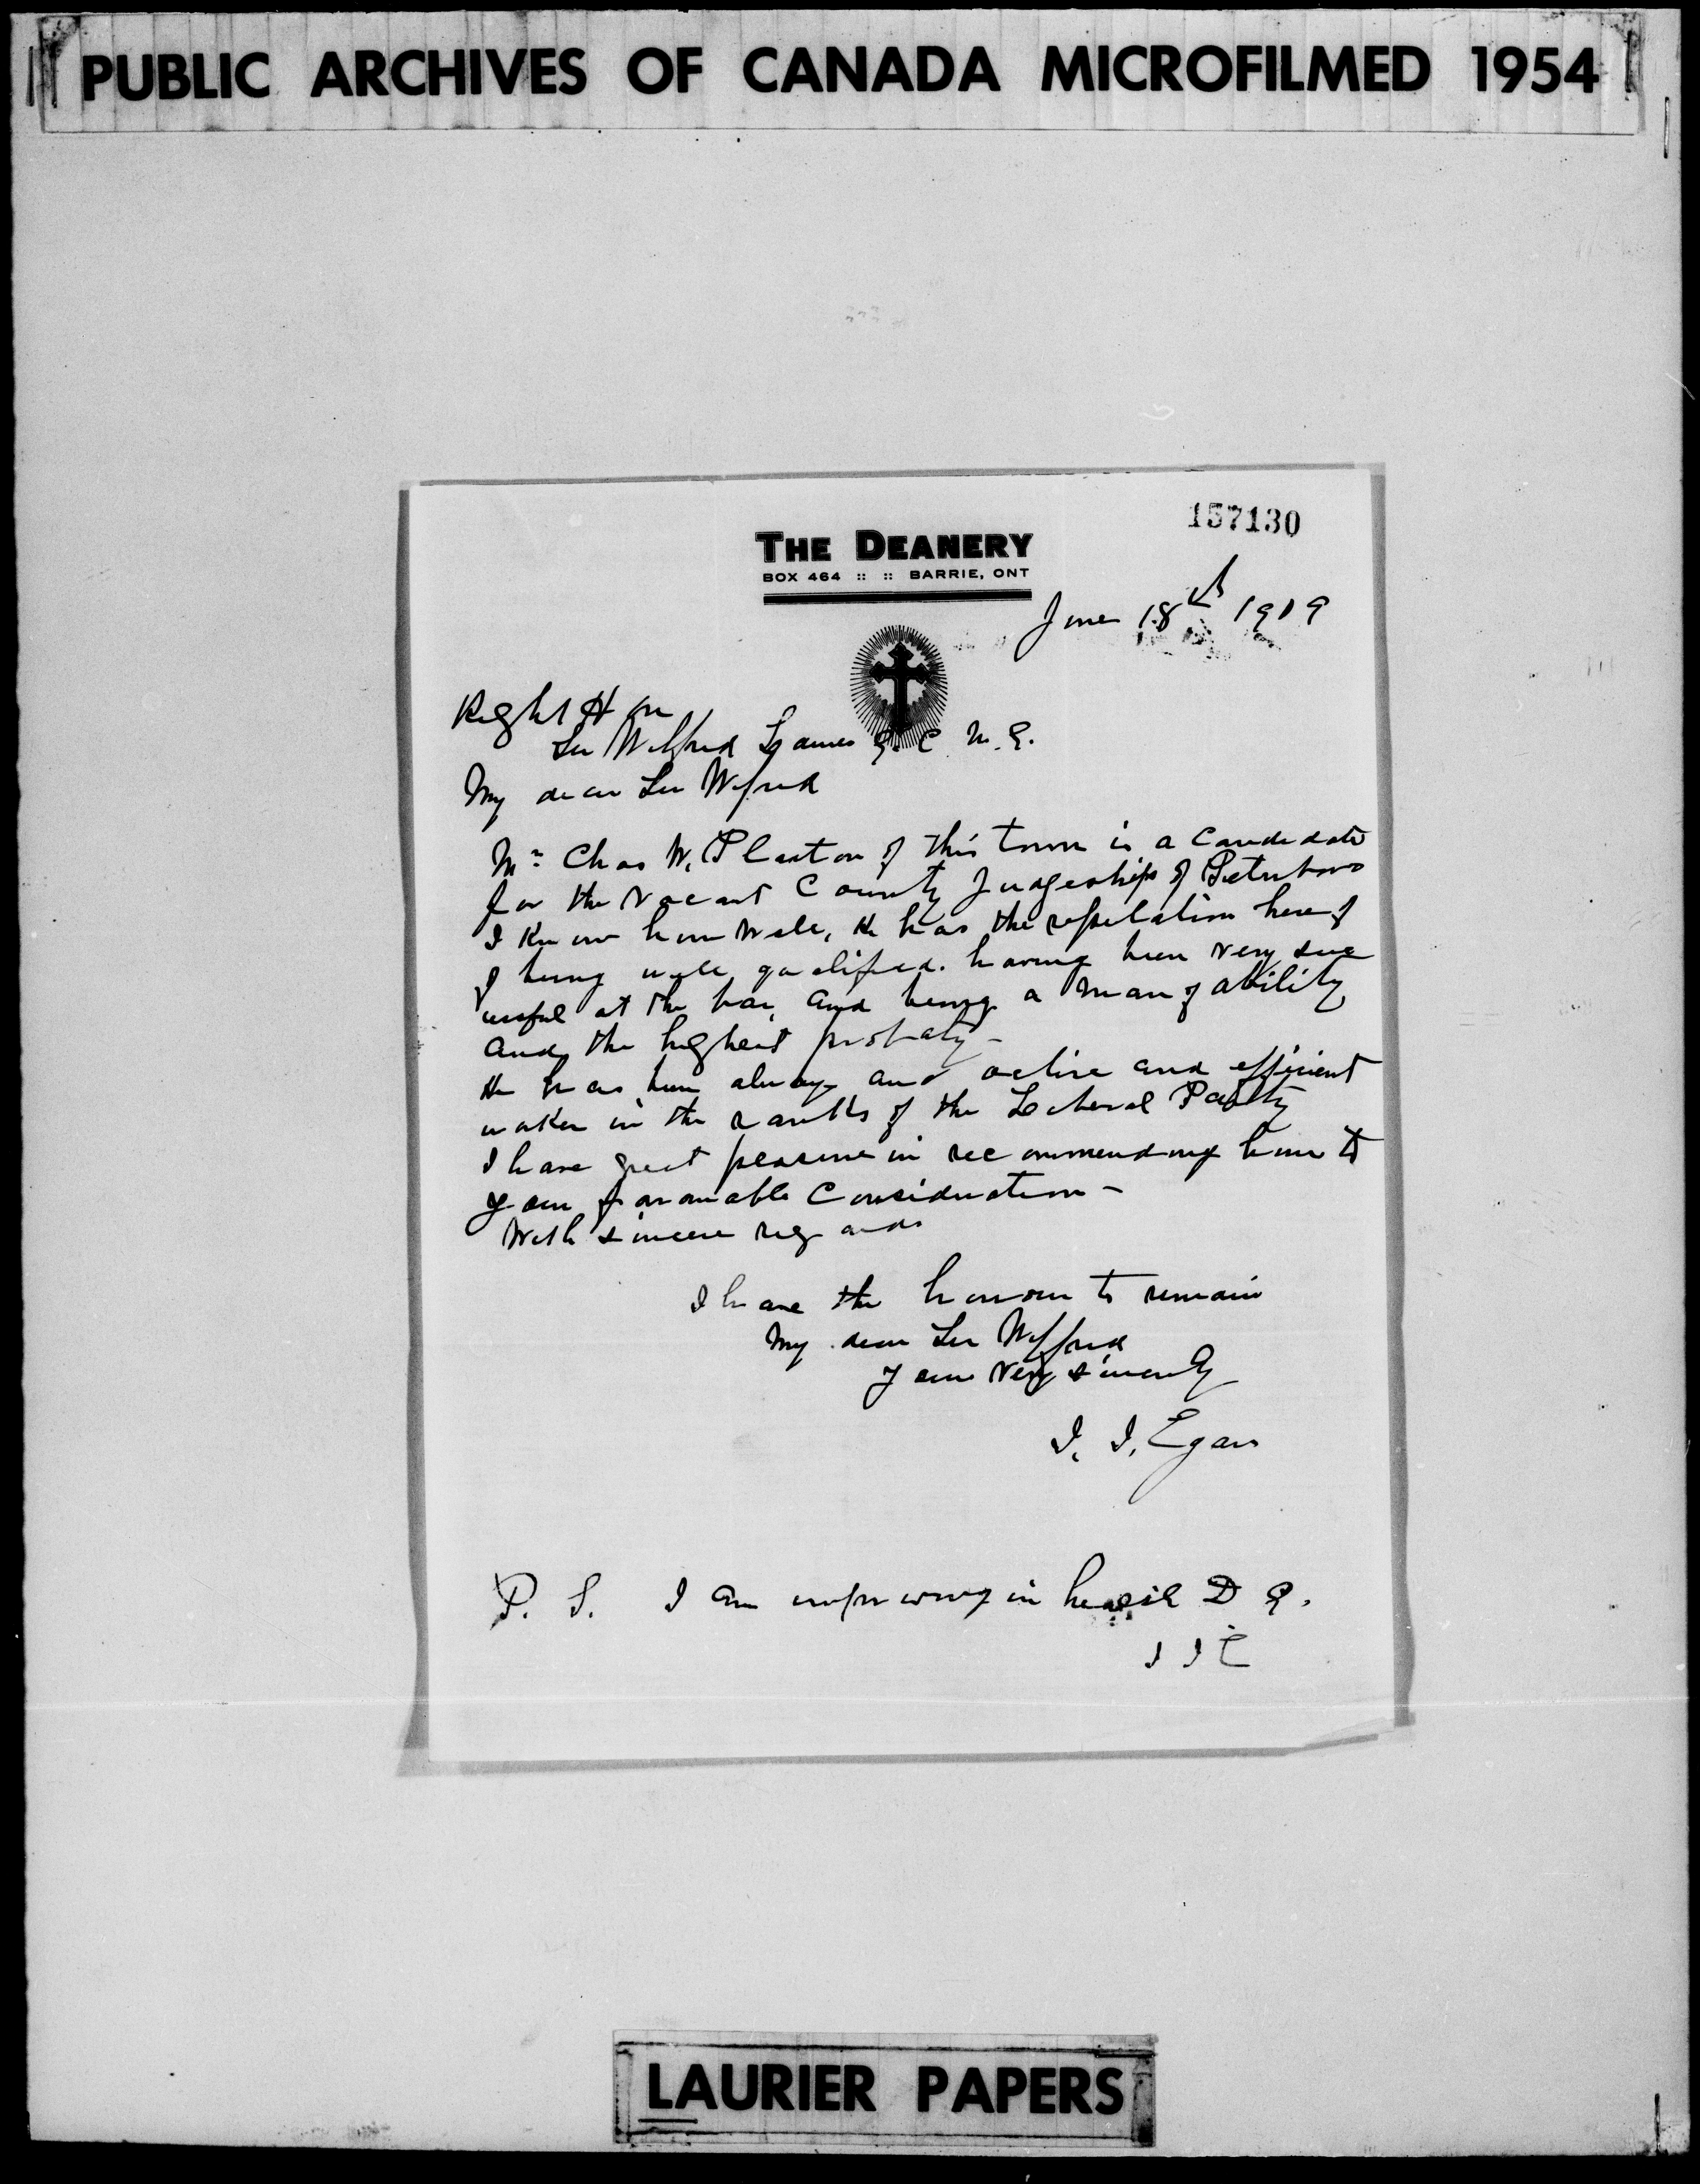 PUBLIC ARCHIVES OF CANADA MICROFILMED 1954
157130
THE DEANERY
BOX 464 :: :: BARRIE, ONT
June 18th 1909
Right Hon
Sir Wilfrid Laurier G. C. M. G.
My dear Sir Wilfrid
Mr Chas W. Plaxton of this town is a candidate
for the vacant County Judgeship of Peterboro
I know him well, He has the reputation here of
of being well qualified. having been very succ
essful at the bar, and being a man of ability
and the highest probity -
He has been always and active and efficient
worker in the ranks of the Liberal Party
I have great pleasure in recommending him to
your favourable Consideration -
With sincere regards
I have the honour to remain
My dear Sir Wilfrid
Yours very sincerely
J. J. Egan
P. S. I am improving in health D G.
J J E
LAURIER PAPERS